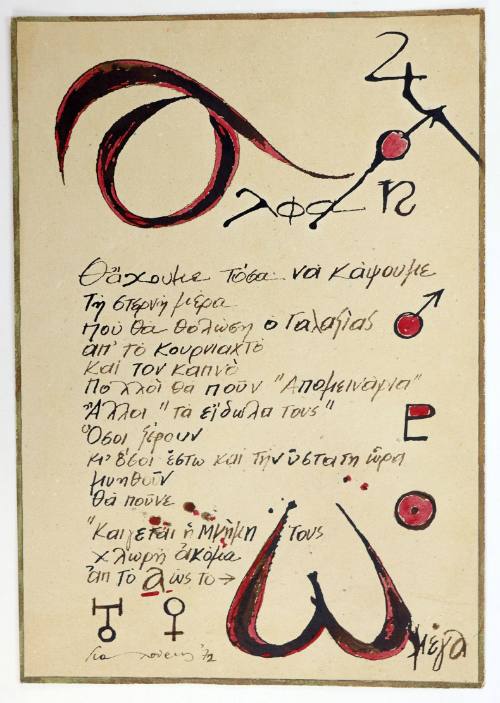 άλφα
Θἄχουμε τόσα νὰ κάψουμε
Τὴ στερνὴ μέρα
Ποὺ θὰ θολώση ὁ Γαλαξίας
ἀπ' τὸ κουρνιαχτὸ
καὶ τὸν καπνὸ
Πολλοὶ θὰ ποῦν "Ἀπομεινάρια"
Ἄλλοι "τὰ εἴδωλά τους"
Ὅσοι ξέρουν
κι' ὅσοι ἔστω καὶ τὴν ὕστατη ὥρα
μυηθοῦν
θὰ ποῦνε
"Καίγεται ἡ Μνήμη τους
χλωρὴ ἀκόμα
ἀπ τὸ α ὡς τὸ →
ω μέγα